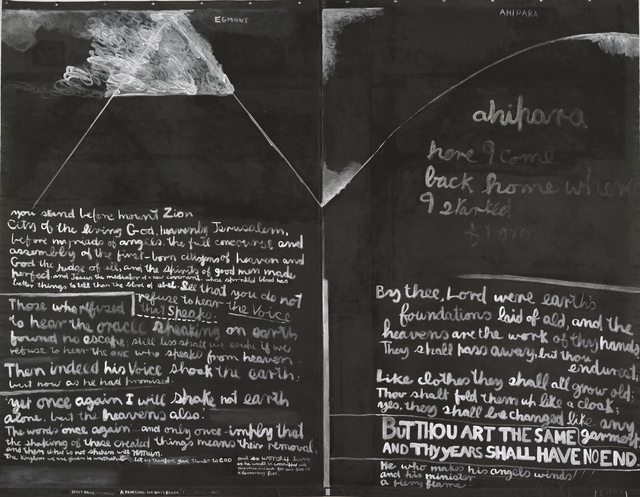 EGMONT
you stand before mount Zion
City of the living God, heavenly Jerusalem,
before myriads of angels, the full concourse and
assembly of the first-born citizens of heaven and
God the judge of all, and the spirits of good men made
perfect, and Jesus the mediator of a new covenant, whose sprinkled blood has
better things to tell than the blood of abel. See that you do not
refuse to hear the Voice
that Speaks.
Those who refused
to hear the oracle speaking on earth
found no escape; still less shall we escape if we
refuse to hear the one who speaks from heaven.
Then indeed his Voice shook the earth,
but now as he had promised.
yet once again I will shake not earth
alone, but the heavens also.
The words once again and only once imply that
the shaking of these created things means their removal,
and then what is not shaken will remain.
The kingdom we are given is unshakable. Let us therefore give thanks to GOD
and so worship him
AHIPARA
ahipara
here I come
back home where
I started
from
By thee, Lord were earth's
foundations laid of old, and the
heavens are the work of thy hands
They shall pass away, but thou
endurest;
Like clothes they shall all grow old;
Thou shalt fold them up like a cloak;
yes, they shall be changed like any
garment
BUT THOU ART THE SAME
AND THY YEARS SHALL HAVE NO END.
He who makes his angels winds
and his minister
a fiery flame